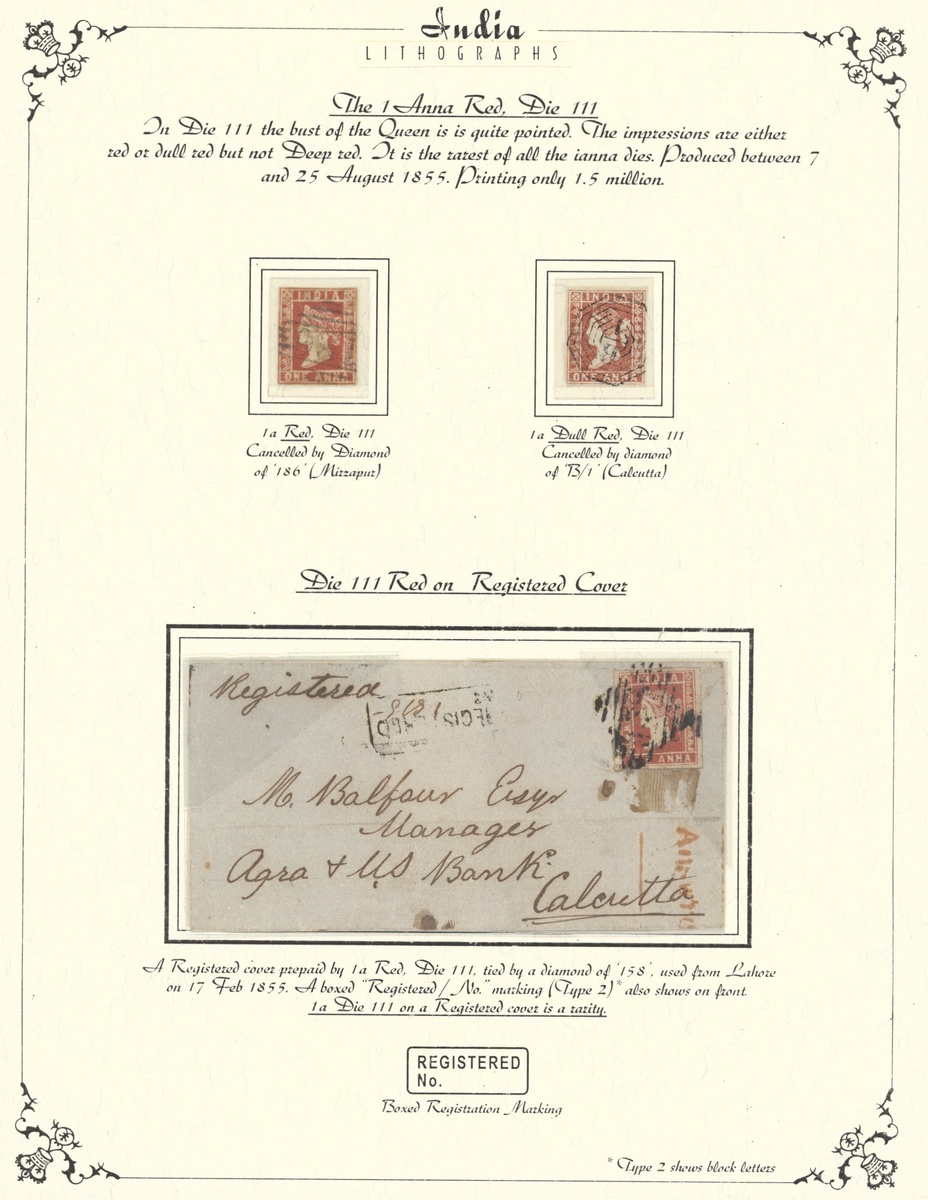 India
LITHOGRAPHS
The 1 Anna Red, Die 111
In Die 111 the bust of the Queen is is quite pointed. The impressions are either
red or dull red but not Deep red. It is the rarest of all the ianna dies. Produced between 7
and 25 August 1855. Printing only 1.5 million.
INDIA
ONE ANNA
INDIA
ONE ANNA
1a Red, Die 111
Cancelled by Diamond
of '186' (Mirzapur)
1a Dull Red, Die 111
Cancelled by diamond
of 'B/1' (Calcutta)
Die 111 Red on Registered Cover
Registered
INDIA
ANNA
M. Balfour Esqr
Manager
Agra & US Bank
Calcutta
A Registered cover prepaid by 1a Red, Die 111, tied by a diamond of '158', used from Lahore
on 17 Feb 1855. A boxed "Registered / No." marking (Type 2)* also shows on front.
1a Die 111 on a Registered cover is a rarity.
REGISTERED
No.
Boxed Registration Marking
* Type 2 shows block letters